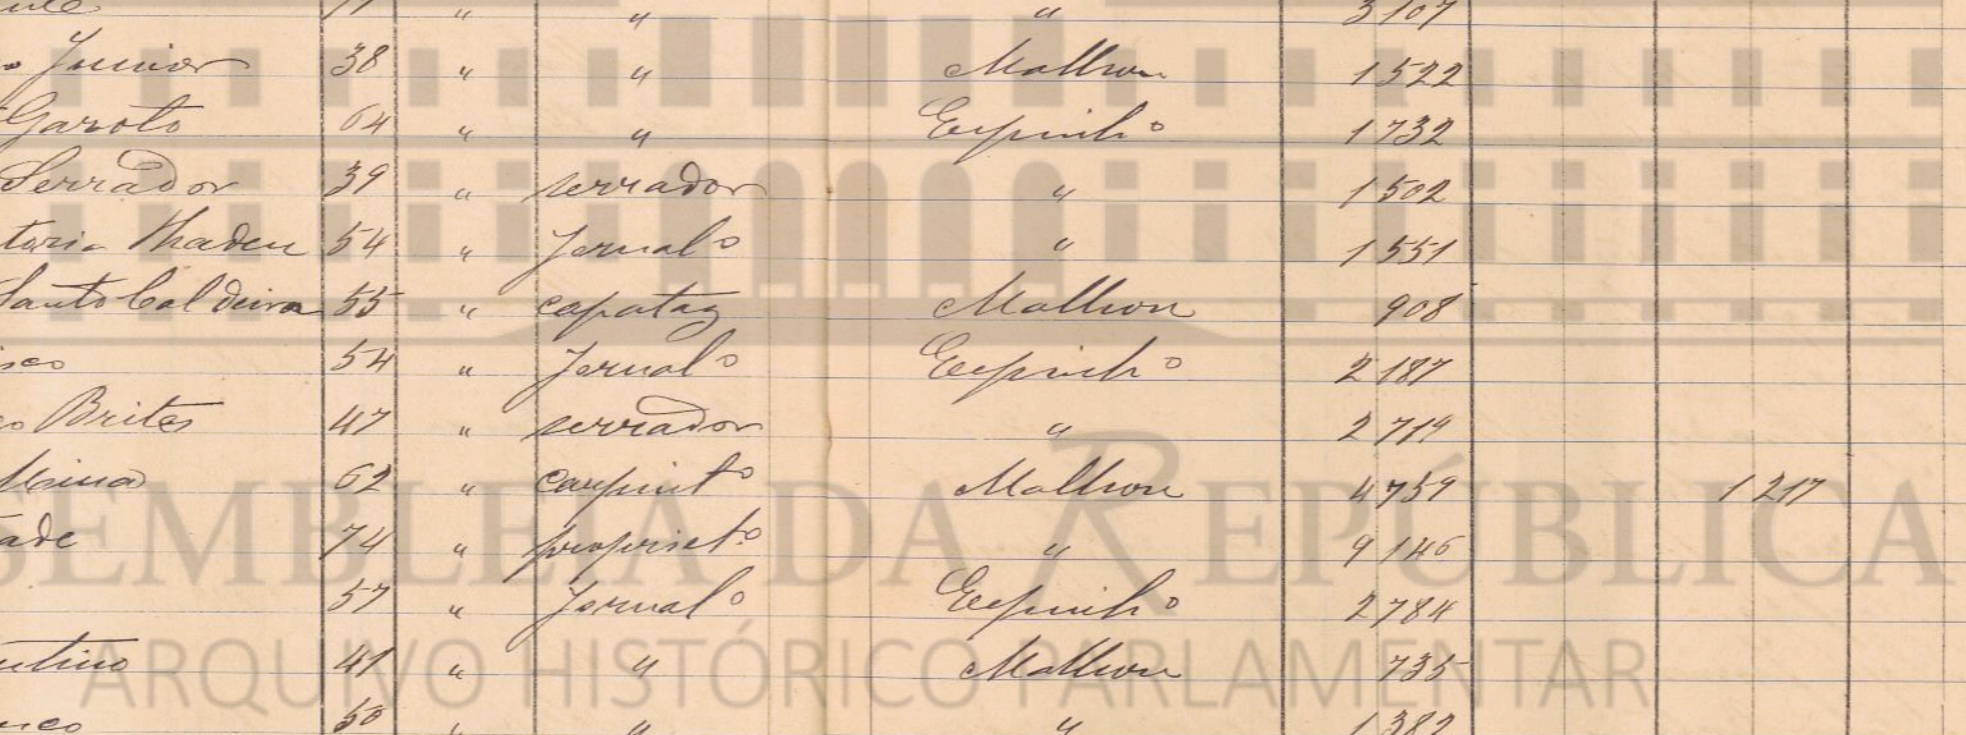 " " " 3107
Junior 38 " " Malhou 1522
Garoto 64 " " Espinhº 1732
Serrador 39 " serrador " 1502
54 " Jornalº " 1551
Santo Caldeira 55 " capataz Malhou 908
54 " Jornalº Espinhº 2187
Brites 47 " serrador " 2719
62 " carpintº Malhou 4759 1217
ade 74 " proprietº " 9146
57 " Jornalº Espinhº 2784
41 " " Malhou 735
50 " " " 1382
ASSEMBLEIA DA REPÚBLICA
ARQUIVO HISTÓRICO PARLAMENTAR